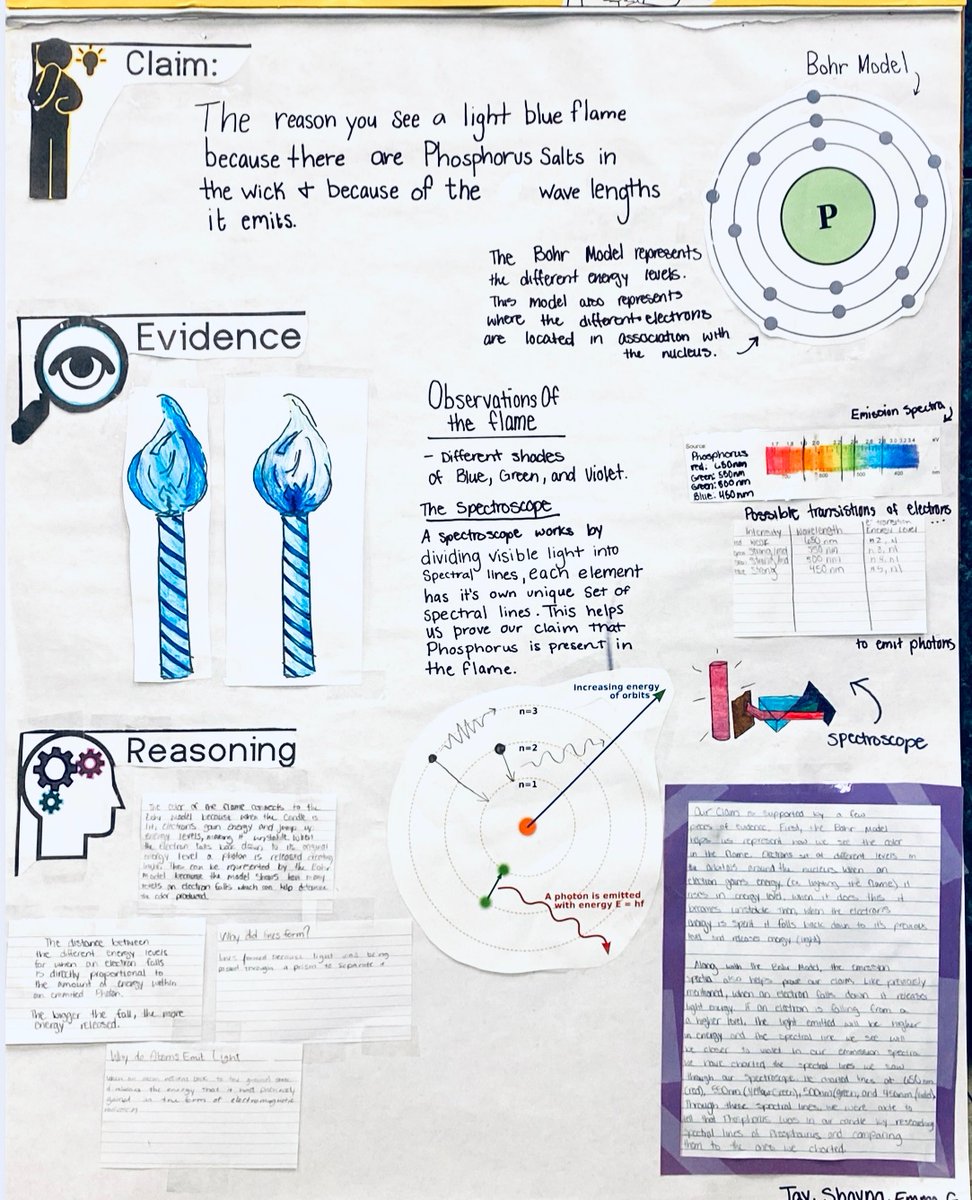 Claim:
The reason you see a light blue flame
because there are Phosphorus Salts in
the wick + because of the wave lengths
it emits.
Bohr Model
P
The Bohr Model represents
the different energy levels.
This model also represents
where the different electrons
are located in association with
the nucleus.
Evidence
Observations Of
the flame
- Different shades
of Blue, Green, and Violet.
The Spectroscope
A spectroscope works by
dividing visible light into
Spectral lines, each element
has it's own unique set of
spectral lines. This helps
us prove our claim that
Phosphorus is present in
the flame.
Emission Spectra
Source
Phosphorus
red: 650nm
Green: 550nm
Green: 500nm
Blue: 450nm
Possible transistions of electrons
...
Intensity Wavelength
Energy Level
weak 650 nm n2, n1
n3, n1
500 nm n4, n1
Strong 450 nm n5, n1
to emit photons
spectroscope
Increasing energy
of orbits
n=3
n=2
n=1
A photon is emitted
with energy E = hf
Reasoning
The color of the flame connects to the
Bohr Model because when the candle is
lit, electrons gain energy and jump up
energy levels, making it unstable. When
the electron falls back down to its original
energy level a photon is released creating
light. This can be represented by the Bohr
Model because the model shows how many
levels an electron falls which can help determine
the color produced.
The distance between
the different energy levels
for when an electron falls
is directly proportional to
the amount of energy within
an emmited Photon.
The bigger the fall, the more
energy released.
Why did lines form?
Lines formed because light was being
passed through a prism to separate it
Why do Atoms Emit Light
When an atom returns back to the ground state
it releases the energy that it had previously
gained in the form of electromagnetic
radiation
Our claim is supported by a few
pieces of evidence. First, the Bohr Model
helps us represent how we see the color
in the flame. Electrons sit at different levels in
the orbitals around the nucleus when an
electron gains energy (ex lighting the flame) it
rises in energy level, when it does this it
becomes unstable then, when the electrons
energy is spent it falls back down to it's previous
level and releases energy (light)
Along with the Bohr Model, the emission
spectra also helps prove our claim. Like previously
mentioned, when an electron falls down it releases
light energy. If an electron is falling from a
a higher level, the light emitted will be higher
in energy and the spectral line we see will
be closer to violet in our emmission spectra
We have charted the spectral lines we saw
through our spectroscope. We charted lines at 650nm
(red), 550nm (Yellow/Green), 500nm (green, and 450nm (violet).
Through these spectral lines, we were able to
tell that Phosphorus was in our candle by researching
spectral lines of Phosphorus and comparing
them to the ones we charted.
Tay, Shayna, Emma G